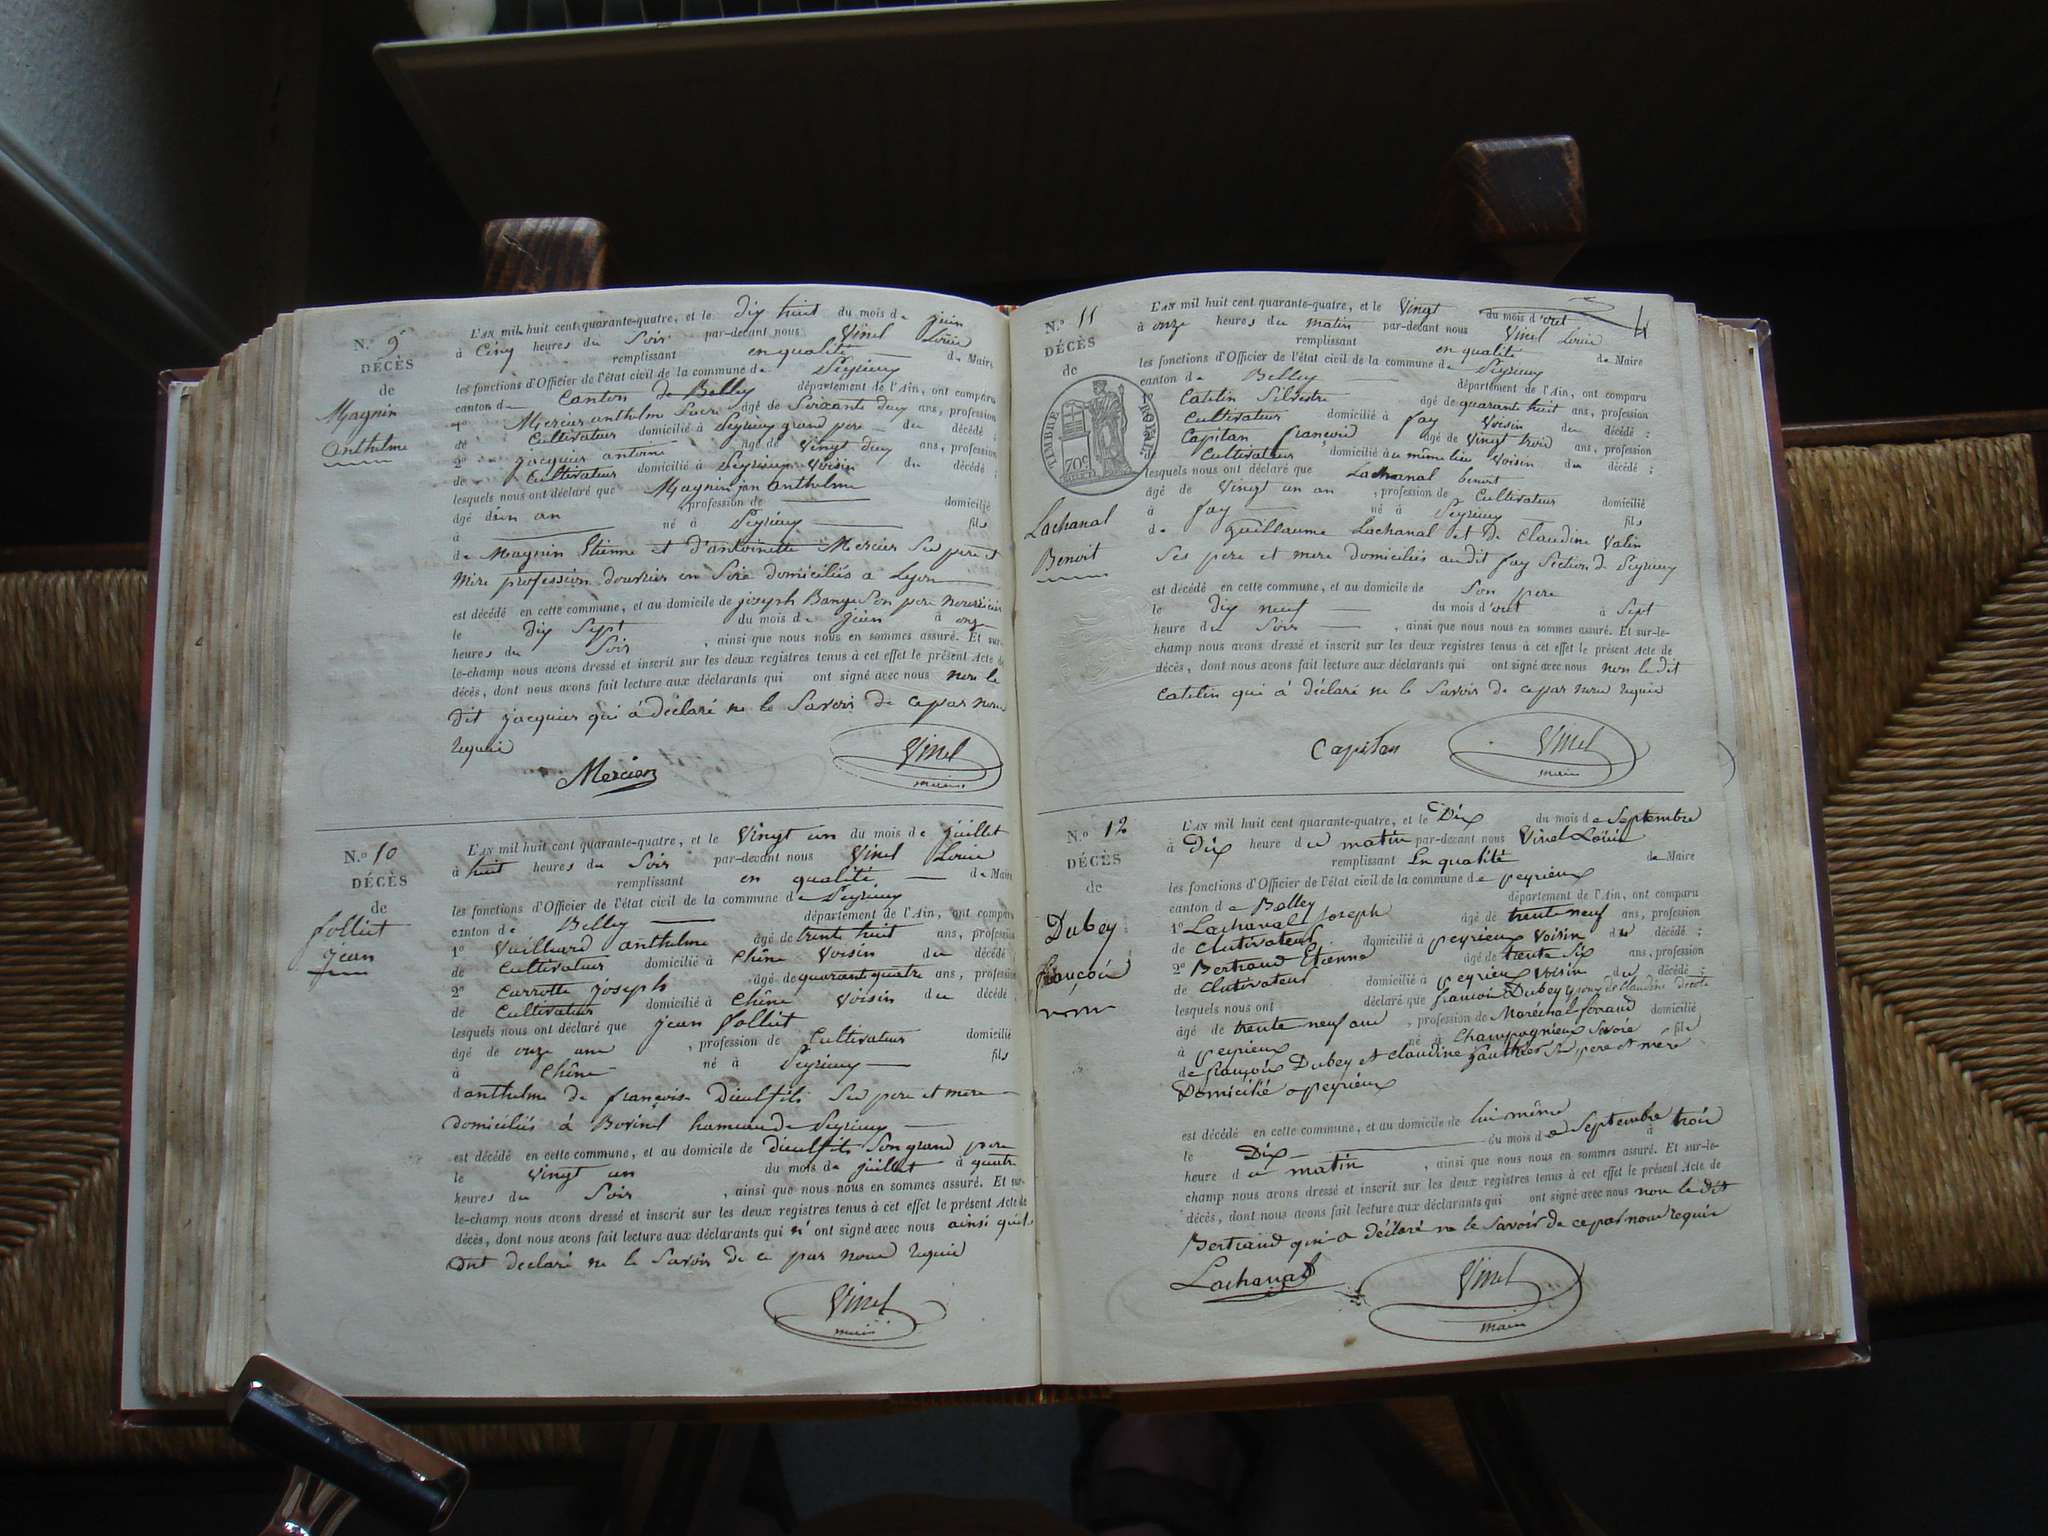 N.o 9
DÉCÈS
de
Magnin
Anthelme
L'AN mil huit cent quarante-quatre, et le dix huit du mois de juin
à Cinq heures du Soir par-devant nous Vinel Louis
remplissant en qualité de Maire
les fonctions d'Officier de l'état civil de la commune de Peyrieux
canton de Canton de Belley département de l'Ain, ont comparu
1o Mercier anthelme âgé de Soixante deux ans, profession
de Cultivateur domicilié à Peyrieux grand pere du décédé ;
2o jacquier antoine âgé de Vingt deux ans, profession
de Cultivateur domicilié à Peyrieux Voisin du décédé ;
lesquels nous ont déclaré que Magnin jon Anthelme
âgé d'un an profession de domicilié
à né à Peyrieux fils
de Magnin Etienne et d'antoinette Mercier Ses pere et
Mere profession d'ouvrier en Soie domiciliés a Lyon
est décédé en cette commune, et au domicile de joseph Son pere nourricier
le dix Sept du mois de juin à onze
heures du Soir , ainsi que nous nous en sommes assuré. Et sur-
le-champ nous avons dressé et inscrit sur les deux registres tenus à cet effet le présent Acte de
décès, dont nous avons fait lecture aux déclarants qui ont signé avec nous non le
dit jacquier qui à déclaré ne le Savoir de ce par nous
requis
Mercier
Vinel
maire
N.o 10
DÉCÈS
de
folliet
jean
L'AN mil huit cent quarante-quatre, et le Vingt un du mois de juillet
à huit heures du Soir par-devant nous Vinel Louis
remplissant en qualité de Maire
les fonctions d'Officier de l'état civil de la commune de Peyrieux
canton de Belley département de l'Ain, ont comparu
1o Vuillard anthelme âgé de trente huit ans, profession
de Cultivateur domicilié à Chêne Voisin du décédé
2o Carrotte joseph âgé de quarante quatre ans, profession
de Cultivateur domicilié à Chêne Voisin du décédé.
lesquels nous ont déclaré que jean folliet
âgé de onze ans , profession de Cultivateur domicilié
à Chêne né à Peyrieux fils
d'anthelme de françoise Dieulfils Ses pere et mere
domiciliés à Borinel hameau de Peyrieux
est décédé en cette commune, et au domicile de Dieulfils Son grand pere
le Vingt un du mois de juillet à quatre
heures du Soir , ainsi que nous nous en sommes assuré. Et sur-
le-champ nous avons dressé et inscrit sur les deux registres tenus à cet effet le présent Acte de
décès, dont nous avons fait lecture aux déclarants qui n' ont signé avec nous ainsi qu'ils
ont déclaré ne le Savoir de ce par nous requis
Vinel
maire
4
N.o 11
DÉCÈS
de
TIMBRE ROYAL
70c
Lachanal
Benoit
L'AN mil huit cent quarante-quatre, et le Vingt du mois d'out
à onze heures du matin par-devant nous Vinel Louis
remplissant en qualité de Maire
les fonctions d'Officier de l'état civil de la commune de Peyrieux
canton de Belley département de l'Ain, ont comparu
Catelin Silvestre âgé de quarante huit ans, profession
Cultivateur domicilié à fay Voisin du décédé ;
Capitan françois âgé de Vingt trois ans, profession
Cultivateur domicilié au même lieu Voisin du décédé ;
lesquels nous ont déclaré que Lachanal benoit
âgé de Vingt un an , profession de Cultivateur domicilié
à fay né à Peyrieux fils
de Guillaume Lachanal et de Claudine Valin
Ses pere et mere domiciliés audit fay Section de Peyrieux
est décédé en cette commune, et au domicile de Son pere
le dix neuf du mois d'out à Sept
heure du Soir , ainsi que nous nous en sommes assuré. Et sur-le-
champ nous avons dressé et inscrit sur les deux registres tenus à cet effet le présent Acte de
décès, dont nous avons fait lecture aux déclarants qui ont signé avec nous non le dit
Catelin qui à déclaré ne le Savoir de ce par nous requis
Capitan
Vinel
maire
N.o 12
DÉCÈS
de
Dubey
françois
L'AN mil huit cent quarante-quatre, et le Dix du mois de Septembre
à Dix heure du matin par-devant nous Vinel Louis
remplissant En qualité de Maire
les fonctions d'Officier de l'état civil de la commune de peyrieux
canton de Belley département de l'Ain, ont comparu
1o Lachanal Joseph âgé de trente neuf ans, profession
de Clutivateur domicilié à peyrieux Voisin du décédé ;
2o Bertrand Etienne âgé de trente Six ans, profession
de Clutivateur domicilié à peyrieux Voisin du décédé ;
lesquels nous ont déclaré que françois Dubey epoux de Claudine
âgé de trente neuf ans , profession de Maréchal ferrand domicilié
à peyrieux né à Champagnieux Savoie fils
de françois Dubey et Claudine gauthier Ses pere et mere
Domicilié a peyrieux
est décédé en cette commune, et au domicile de lui même
le Dix du mois de Septembre à trois
heure du matin , ainsi que nous nous en sommes assuré. Et sur-le-
champ nous avons dressé et inscrit sur les deux registres tenus à cet effet le présent Acte de
décès, dont nous avons fait lecture aux déclarants qui ont signé avec nous non le dit
Bertrand qui a déclaré ne le Savoir de ce par nous requis
Lachanal
Vinel
maire